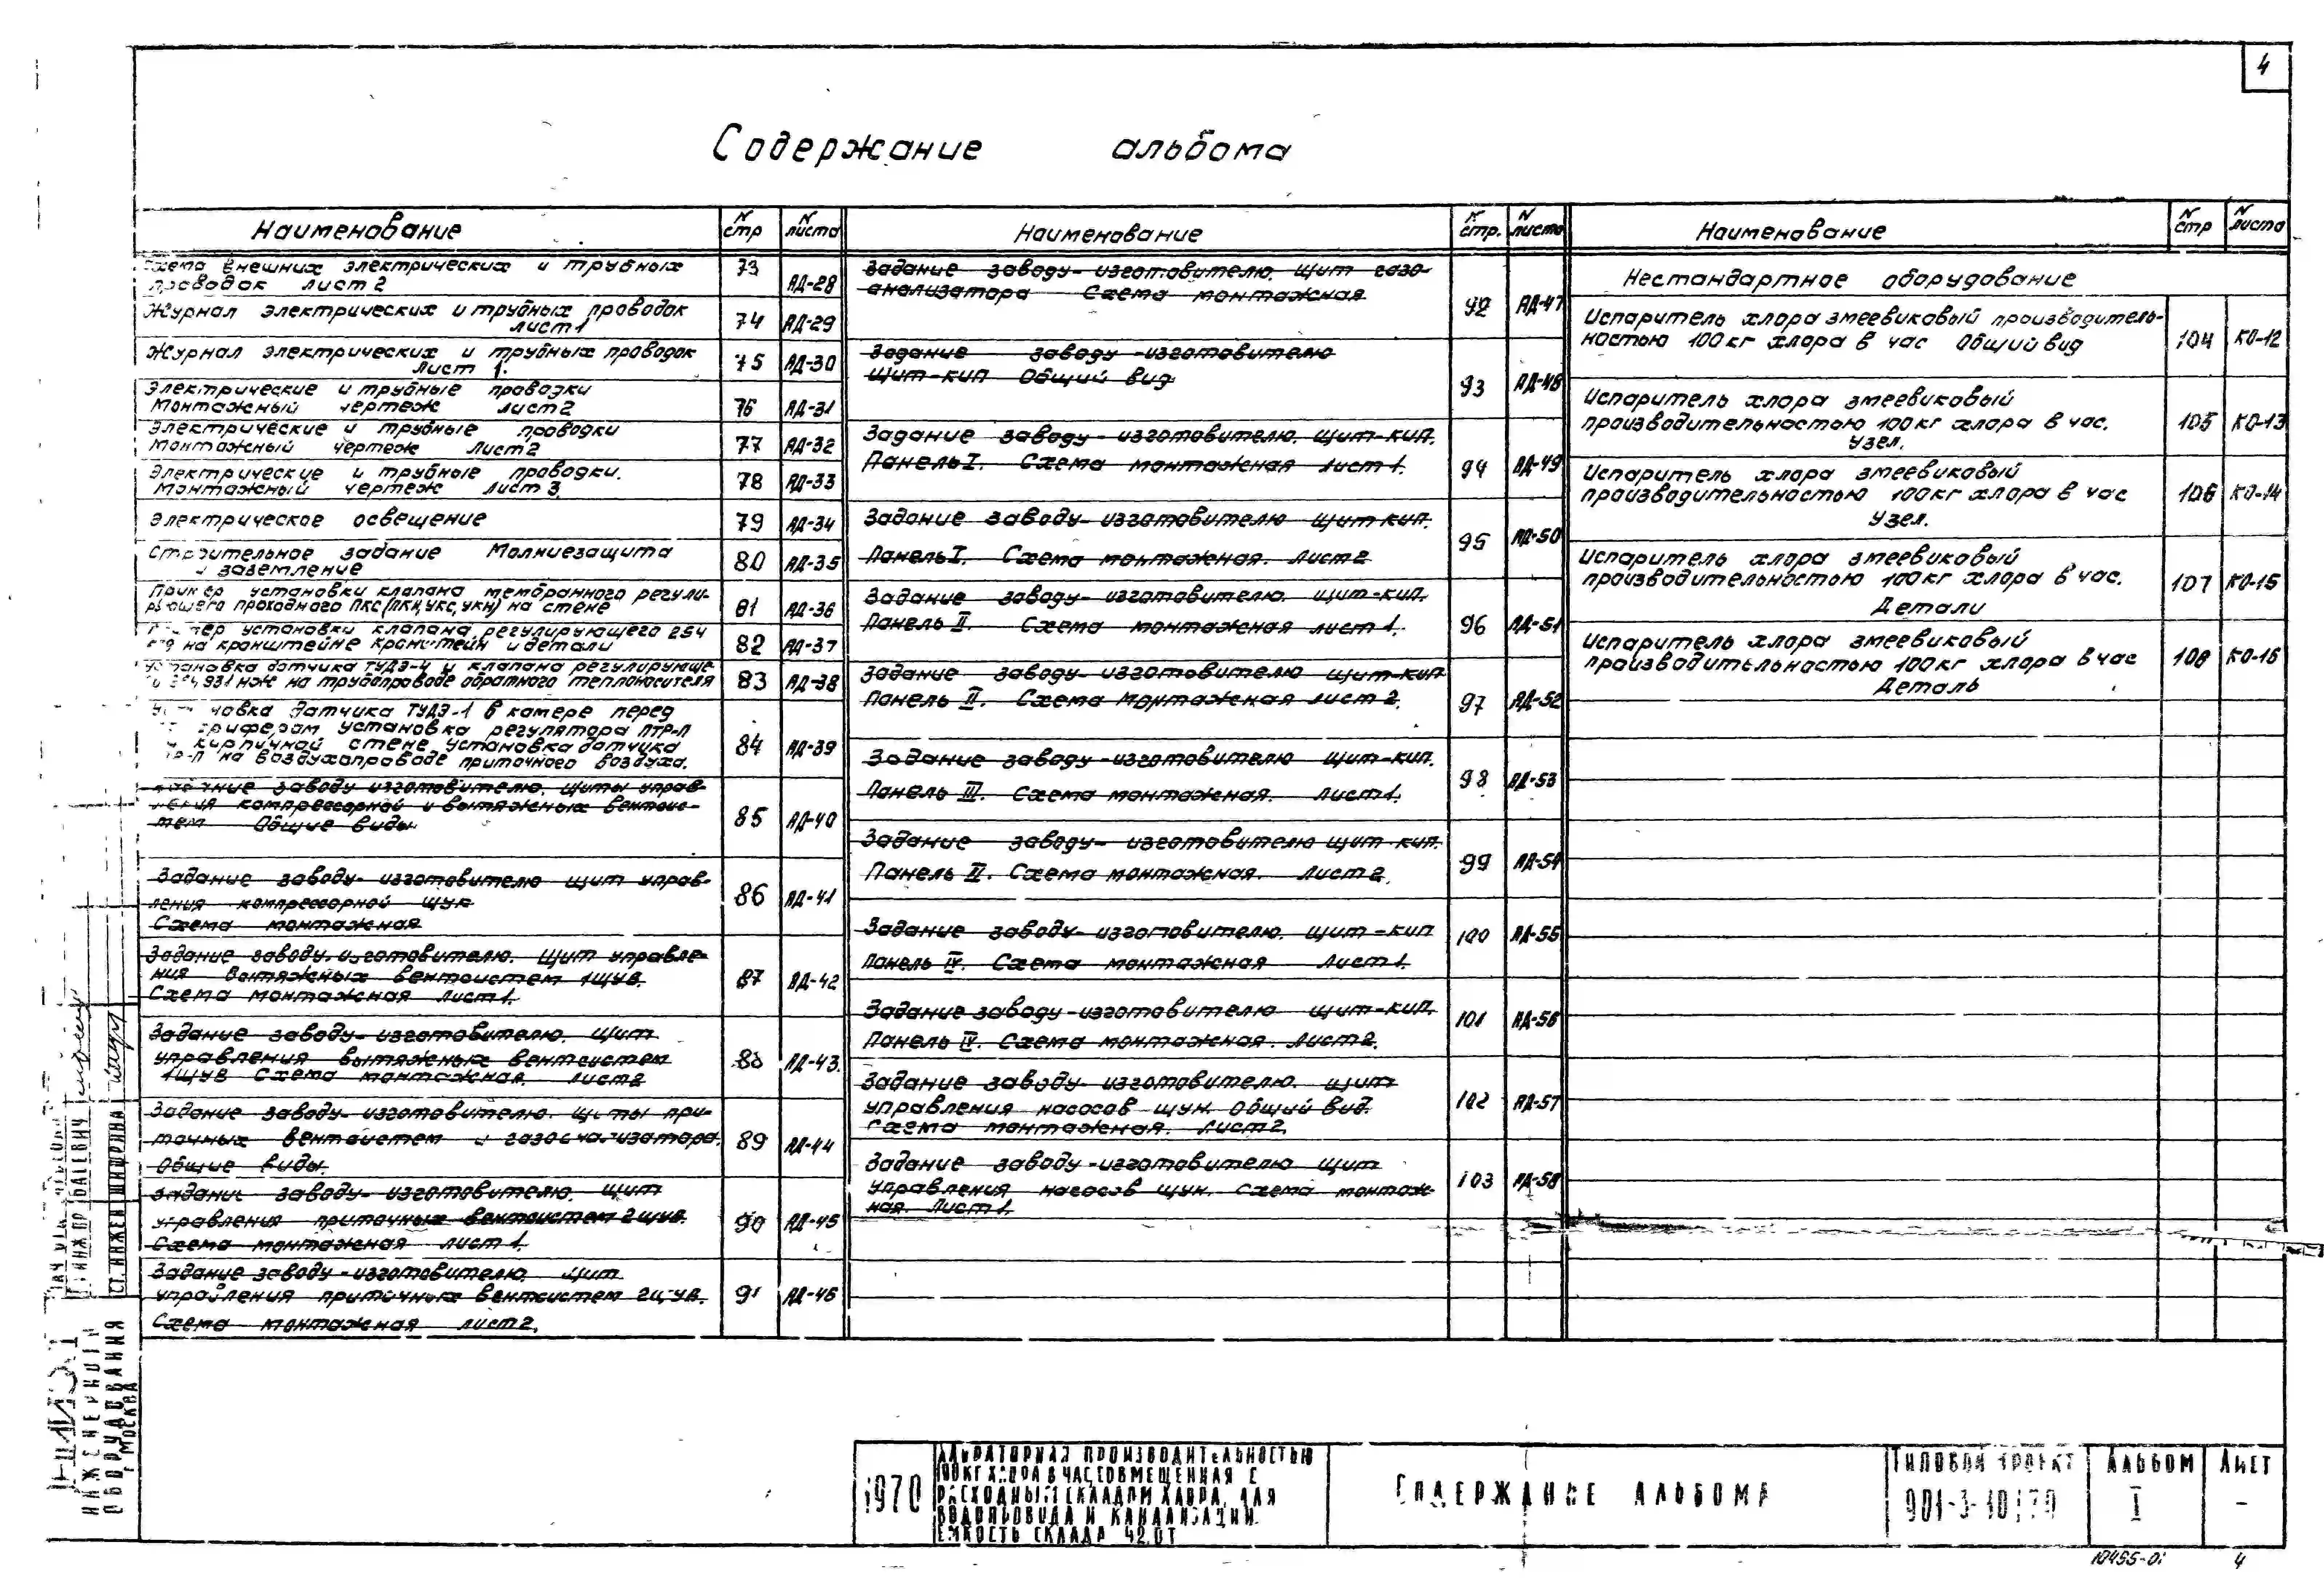 4
Содержание альбома
Наименование
N стр
N листа
Наименование
N стр.
N листа
Наименование
N стр
N листа
внешних электрических и трубных
проводок лист 2
73
АД-28
Журнал электрических и трубных проводок
лист 1
74
АД-29
Журнал электрических и трубных проводок
Лист 1.
75
АД-30
Электрические и трубные проводки
Монтажный чертеж лист 2
76
АД-31
Электрические и трубные проводки
Монтажный чертеж Лист 2
77
АД-32
Электрические и трубные проводки.
Монтажный чертеж Лист 3.
78
АД-33
Электрическое освещение
79
АД-34
Строительное задание Молниезащита
и заземление
80
АД-35
Пример установки клапана мембранного регули-
рующего проходного ПКС (ПКН, УКС, УКН) на стене
81
АД-36
установки клапана регулирующего 254
на кронштейне Кронштейн и детали
82
АД-37
Установка датчика ТУДЭ-4 и клапана регулирующе-
931 нж на трубопроводе обратного теплоносителя
83
АД-38
датчика ТУДЭ-1 в камере перед
установка регулятора ПТР-П
кирпичной стене установка датчика
на воздухопроводе приточного воздуха.
84
АД-39
заводу изготовителю. Щиты управ-
ления компрессорной и вытяжных вентсис-
тем Общие виды
85
АД-40
Задание заводу-изготовителю щит управ-
ления компрессорной щук
Схема монтажная
86
АД-41
Задание заводу-изготовителю. Щит управле-
ния вытяжных вентсистем 1щув.
Схема монтажная Лист 1.
87
АД-42
Задание заводу-изготовителю. Щит
управления вытяжных вентсистем
1щув Схема монтажная. Лист 2
88
АД-43.
Задание заводу-изготовителю. щиты при-
точных вентсистем и газоанализатора.
Общие виды.
89
АД-44
Задание заводу-изготовителю. Щит
управления приточных вентсистем 2щув.
Схема монтажная лист 1.
90
АД-45
Задание заводу-изготовителю. щит
управления приточных вентсистем 2щув.
Схема монтажная лист 2.
91
АД-46
Задание заводу-изготовителю. Щит газо-
анализатора Схема монтажная
92
АД-47
Задание заводу-изготовителю
Щит-кип Общий вид
93
АД-48
Задание заводу-изготовителю. щит-кип.
Панель I. Схема монтажная лист 1.
94
АД-49
Задание заводу-изготовителю щит кип.
Панель I. Схема монтажная. Лист 2
95
АД-50
Задание заводу-изготовителю. щит-кип.
Панель II. Схема монтажная лист 1.
96
АД-51
Задание заводу-изготовителю щит-кип
Панель II. Схема монтажная лист 2.
97
АД-52
Задание заводу-изготовителю щит-кип.
Панель III. Схема монтажная. лист 1.
98
АД-53
Задание заводу-изготовителю щит-кип.
Панель II. Схема монтажная. Лист 2.
99
АД-54
Задание заводу-изготовителю. щит-кип
Панель IV. Схема монтажная Лист 1.
100
АД-55
Задание заводу-изготовителю щит-кип.
Панель IV. Схема монтажная. Лист 2.
101
АД-56
Задание заводу-изготовителю. щит
управления насосов щун. Общий вид.
Схема монтажная. Лист 2.
102
АД-57
Задание заводу-изготовителю щит
управления насосов щун. схема монтаж-
ная. Лист 1.
103
АД-58
Нестандартное оборудование
Испаритель хлора змеевиковый производитель-
ностью 100 кг хлора в час Общий вид
104
КО-12
Испаритель хлора змеевиковый
производительностью 100 кг хлора в час.
Узел.
105
КО-13
Испаритель хлора змеевиковый
производительностью 100 кг хлора в час
Узел.
106
КО-14
Испаритель хлора змеевиковый
производительностью 100 кг хлора в час.
Детали
107
КО-15
Испаритель хлора змеевиковый
производительностью 100 кг хлора в час
Деталь
108
КО-16
ИНЖЕНЕРНОГО
ОБОРУДОВАНИЯ
г МОСКВА
СТ. ИНЖЕН
1970
ПРОИЗВОДИТЕЛЬНОСТЬЮ
100 КГ ХЛОРА В ЧАС СОВМЕЩЕННАЯ С
РАСХОДНЫМ СКЛАДОМ ХЛОРА ДЛЯ
ВОДОПРОВОДА И КАНАЛИЗАЦИИ.
ЕМКОСТЬ СКЛАДА 42.0Т
СОДЕРЖАНИЕ АЛЬБОМА
ТИПОВОЙ ПРОЕКТ
901-3-10/70
АЛЬБОМ
I
ЛИСТ
-
10455-01 4